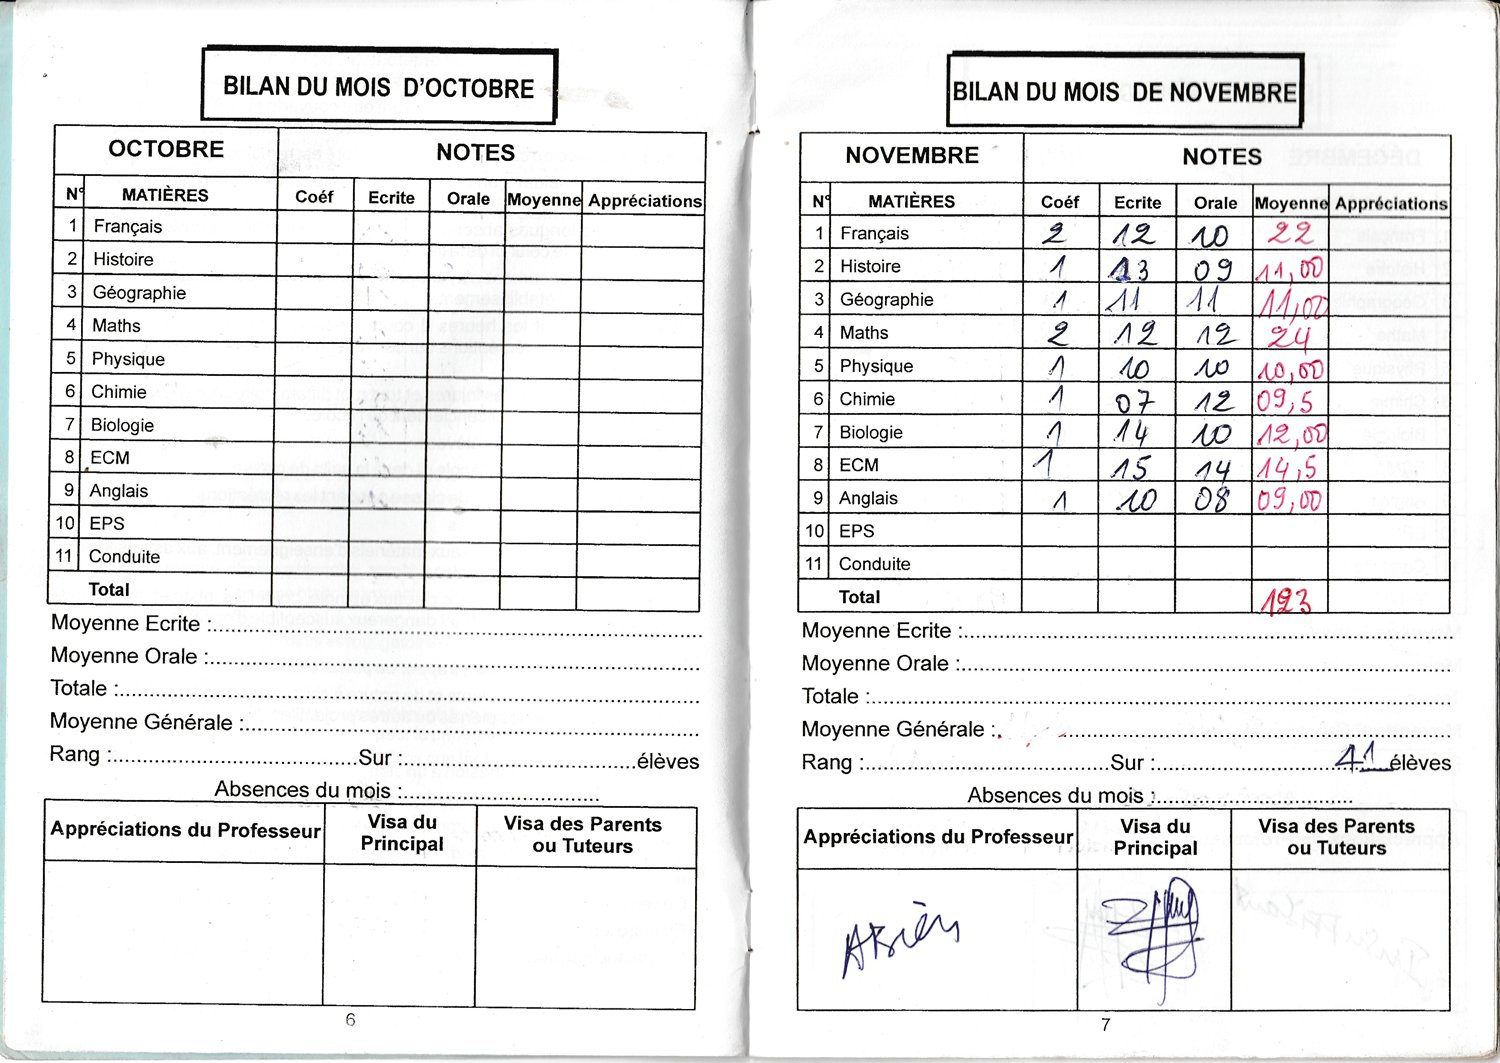 BILAN DU MOIS D'OCTOBRE
OCTOBRE NOTES
N° MATIÈRES Coéf Ecrite Orale Moyenne Appréciations
1 Français
2 Histoire
3 Géographie
4 Maths
5 Physique
6 Chimie
7 Biologie
8 ECM
9 Anglais
10 EPS
11 Conduite
Total
Moyenne Ecrite :
Moyenne Orale :
Totale :
Moyenne Générale :
Rang : Sur : élèves
Absences du mois :
Appréciations du Professeur Visa du Principal Visa des Parents ou Tuteurs
6
BILAN DU MOIS DE NOVEMBRE
NOVEMBRE NOTES
N° MATIÈRES Coéf Ecrite Orale Moyenne Appréciations
1 Français 2 12 10 22
2 Histoire 1 13 09 11,00
3 Géographie 1 11 11 11,00
4 Maths 2 12 12 24
5 Physique 1 10 10 10,00
6 Chimie 1 07 12 09,5
7 Biologie 1 14 10 12,00
8 ECM 1 15 14 14,5
9 Anglais 1 10 08 09,00
10 EPS
11 Conduite
Total 123
Moyenne Ecrite :
Moyenne Orale :
Totale :
Moyenne Générale :
Rang : Sur : 41 élèves
Absences du mois :
Appréciations du Professeur Visa du Principal Visa des Parents ou Tuteurs
ABien
7